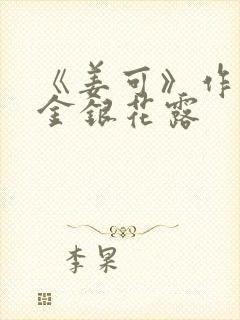 《姜可》作
金银花露
李杲